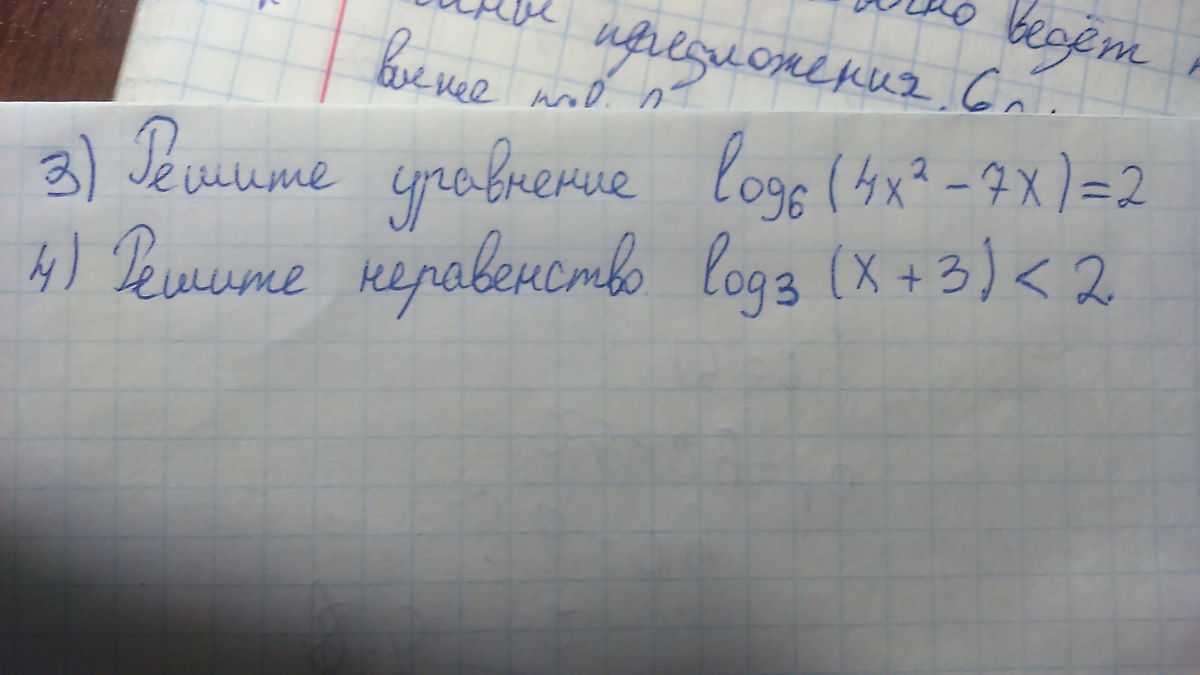 ведёт
предложения.
3) Решите уравнение log₆ (4x² - 7x) = 2
4) Решите неравенство log₃ (x + 3) < 2.